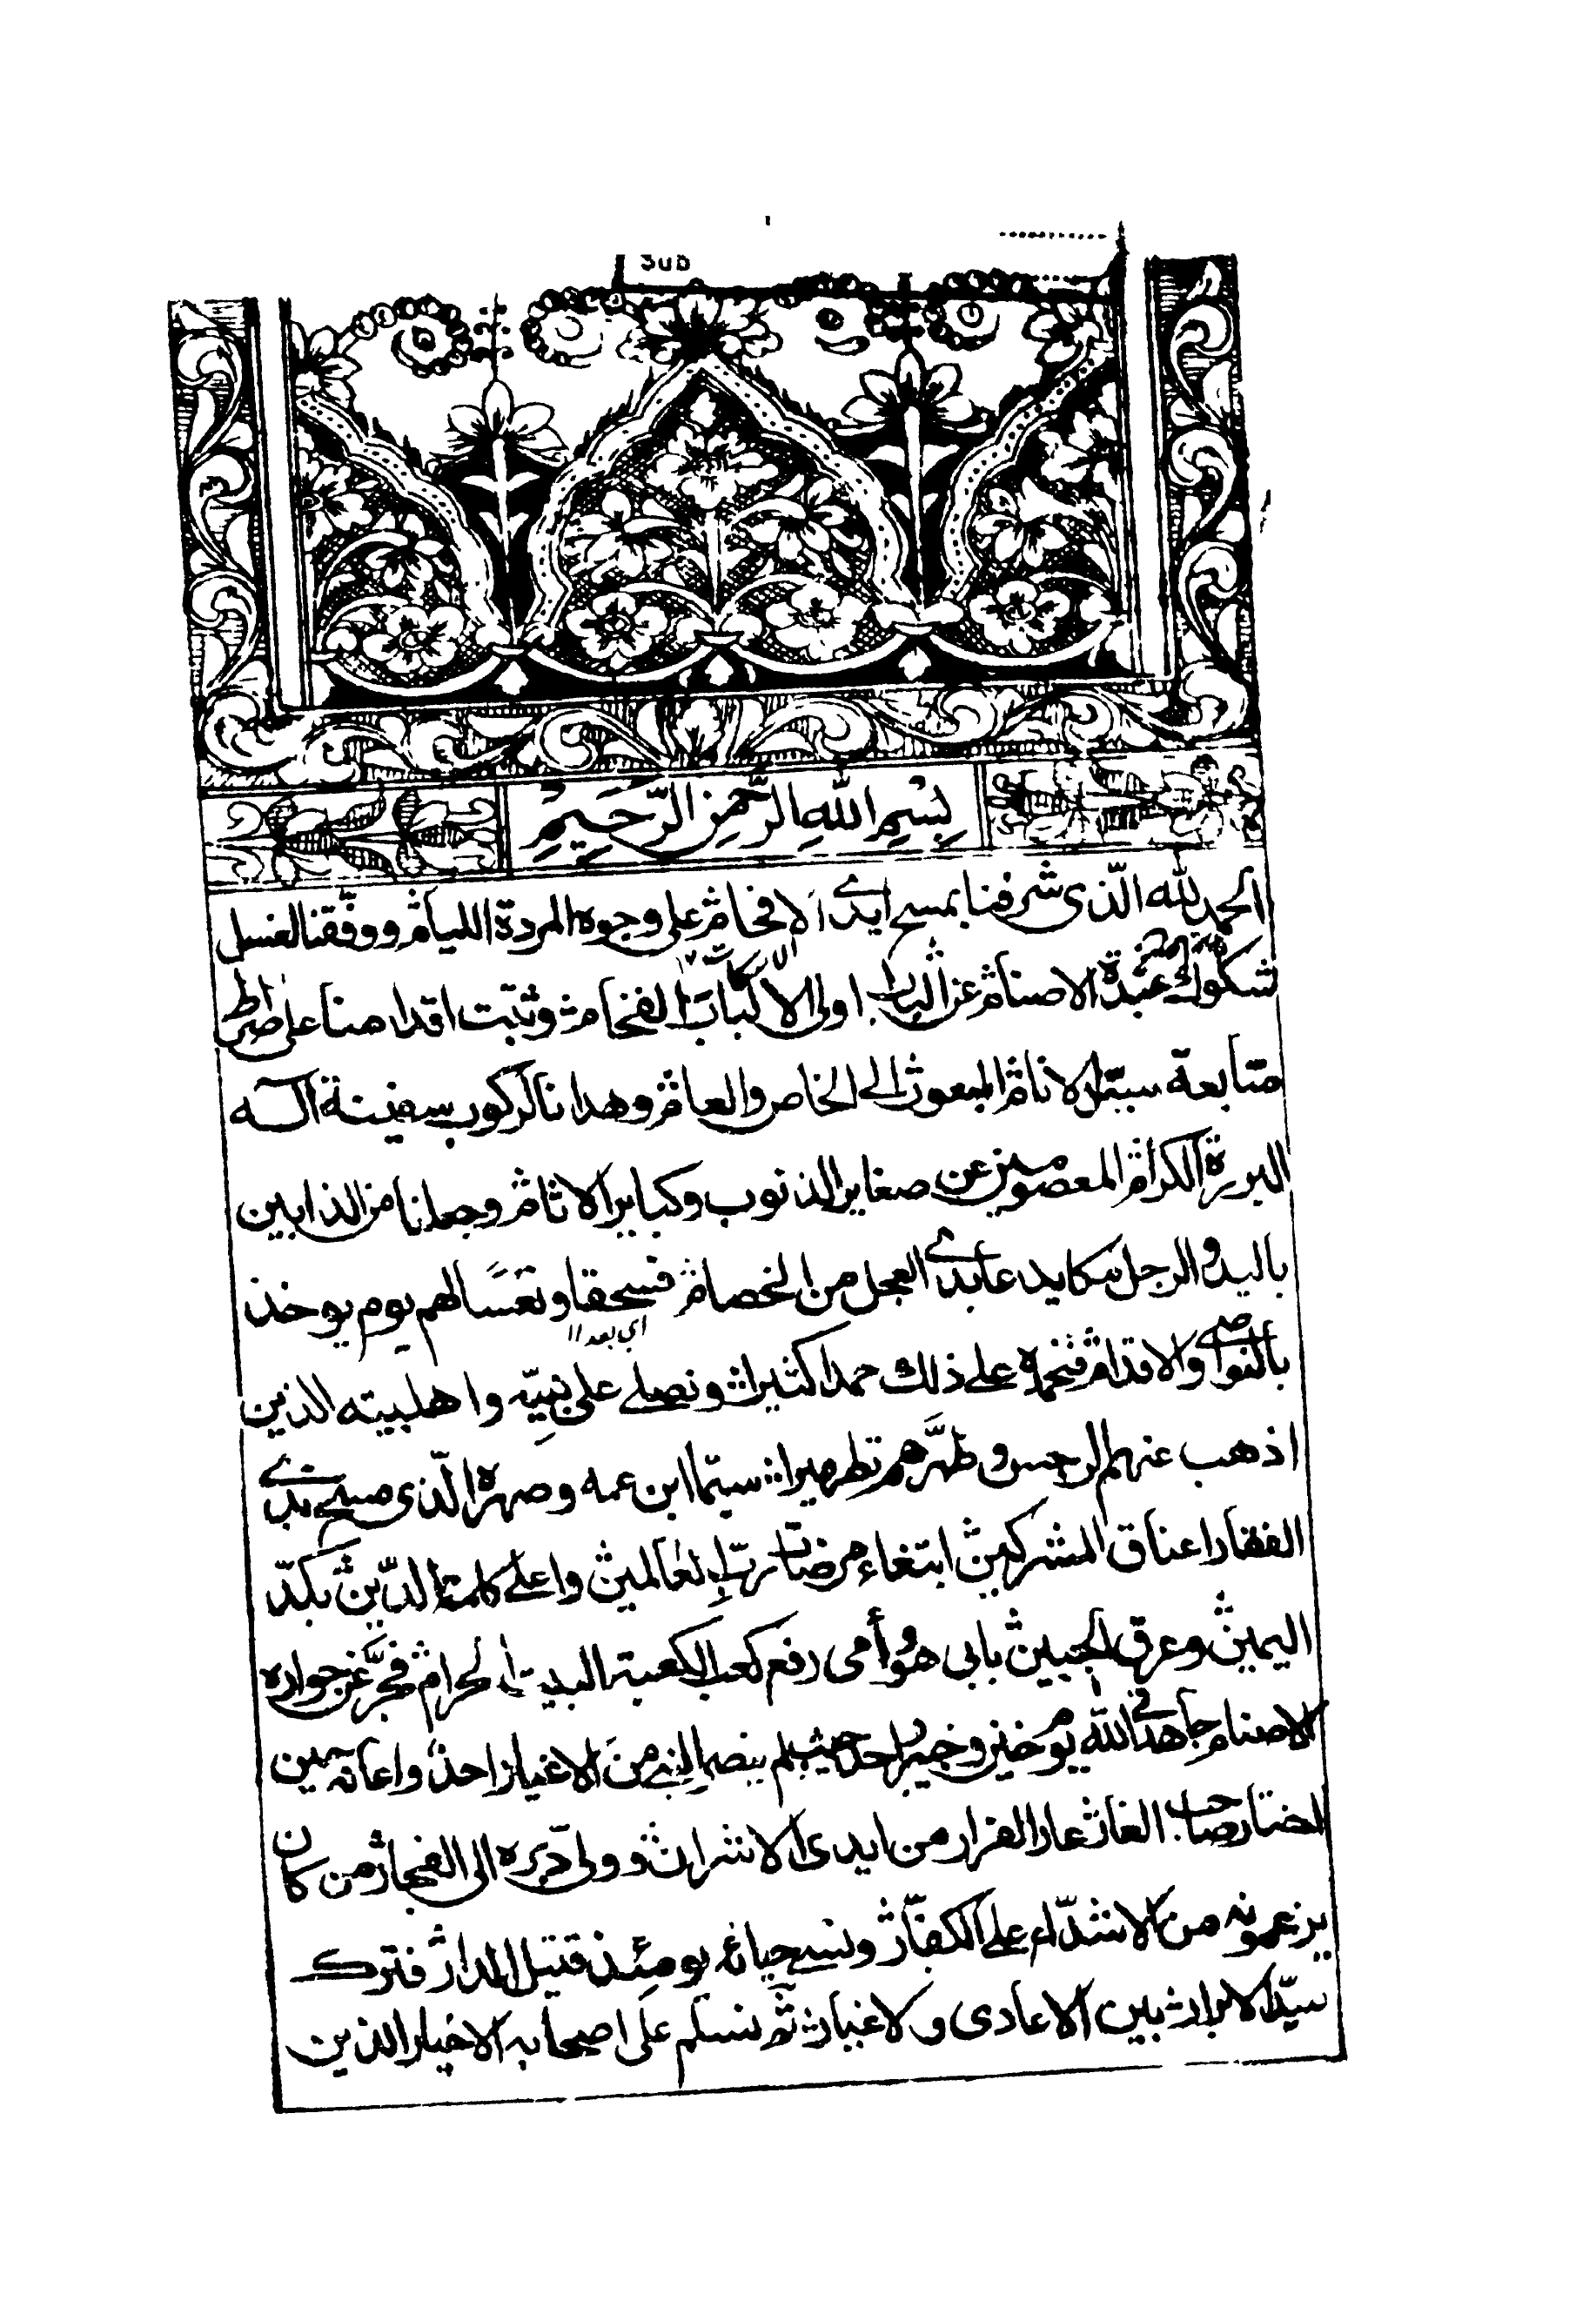 Sub
بِسْمِ اللهِ الرَّحْمٰنِ الرَّحِيْمِ
الحمد لله الّذى شرفنا بمسح ايدے الافخام على وجوه المردة الليام ووفّقنا لغسل
شكوك عبدة الاصنام عن الباب اولى الالباب الفخام وثبت اقدامنا على صراط
متابعة سيّد الانام المبعوث الى الخاص والعام وهدانا لركوب سفينة آله
البررة الكرام المعصومين عن صغاير الذنوب وكباير الاثام وجعلنا من الذابين
باليد والرجل مكايد عابدے العجل من الخصام فسحقا وتعسًا لهم يوم يوخذ
اي بعدا
بالنواصے والاقدام فنحمده علے ذلك حمدا كثيرا ونصلے على نبيّه واهلبيته الذين
اذهب عنهم الرجس وطهّرهم تطهيرا سيّما ابن عمه وصهره الّذى مسح بذے
الفقار اعناق المشركين ابتغاء مرضات ربّ العالمين واعلے كلمة الدّين بكدّ
اليمين وعرق الجبين بابى هو وأمى رفع كعب الكعبة البيت الحرام فخرّ عن جواره
الاصنام جاهد فے الله يوم حنين وخيبر واحد حيث لم ينصر النبے من الاغيار احد واعانه حين
اختار صاحب الغار عار الفرار من ايدى الاشرار وولى دبره الى الفجار من كان
يزعمونه من الاشدّاء على الكفّار ونسے حيائه يومئذ قتيل الدار فترك
سيّد الابرار بين الاعادى والاغيار ثم نسلم على اصحابه الاخيار الذين